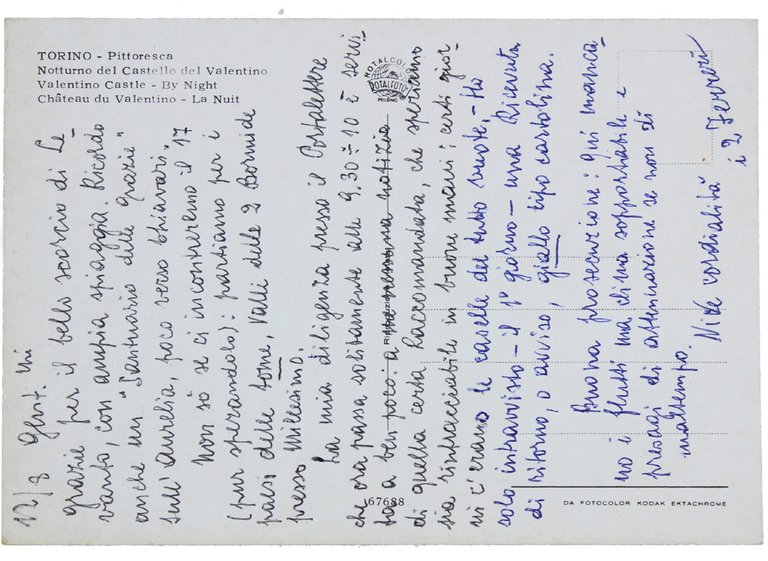 TORINO - Pittoresca
Notturno del Castello del Valentino
Valentino Castle - By Night
Château du Valentino - La Nuit
ROTALCOLOR
ROTALFOTO
MILANO
67688
DA FOTOCOLOR KODAK EKTACHROME
12/8 Gent.mi
grazie per il bello scorcio di Le-
vanto, con ampia spiaggia. Ricordo
anche un "Santuario delle grazie"
sull'Aurelia, poco verso Chiavari.
Non so se ci incontreremo il 17
(pur sperandolo): partiamo per i
paesi delle tome, Valli delle 2 Bormide
presso Millesimo.
La mia diligenza presso il Portalettere
che ora passa solitamente alle 9.30÷10 è servi-
ta a ben poco: nessuna notizia
di quella certa Raccomandata, che speriamo
sia rintracciabile in buone mani: certi gior-
ni c'erano le caselle del tutto vuote. Ho
solo intravvisto - il 1° giorno - una Ricevuta
di ritorno, o avviso, giallo tipo cartolina.
Buona prosecuzione: qui manca-
no i flutti ma clima sopportabile e
presagi di attenuazione se non di
maltempo.
Vive cordialità
i 2 Ferreri